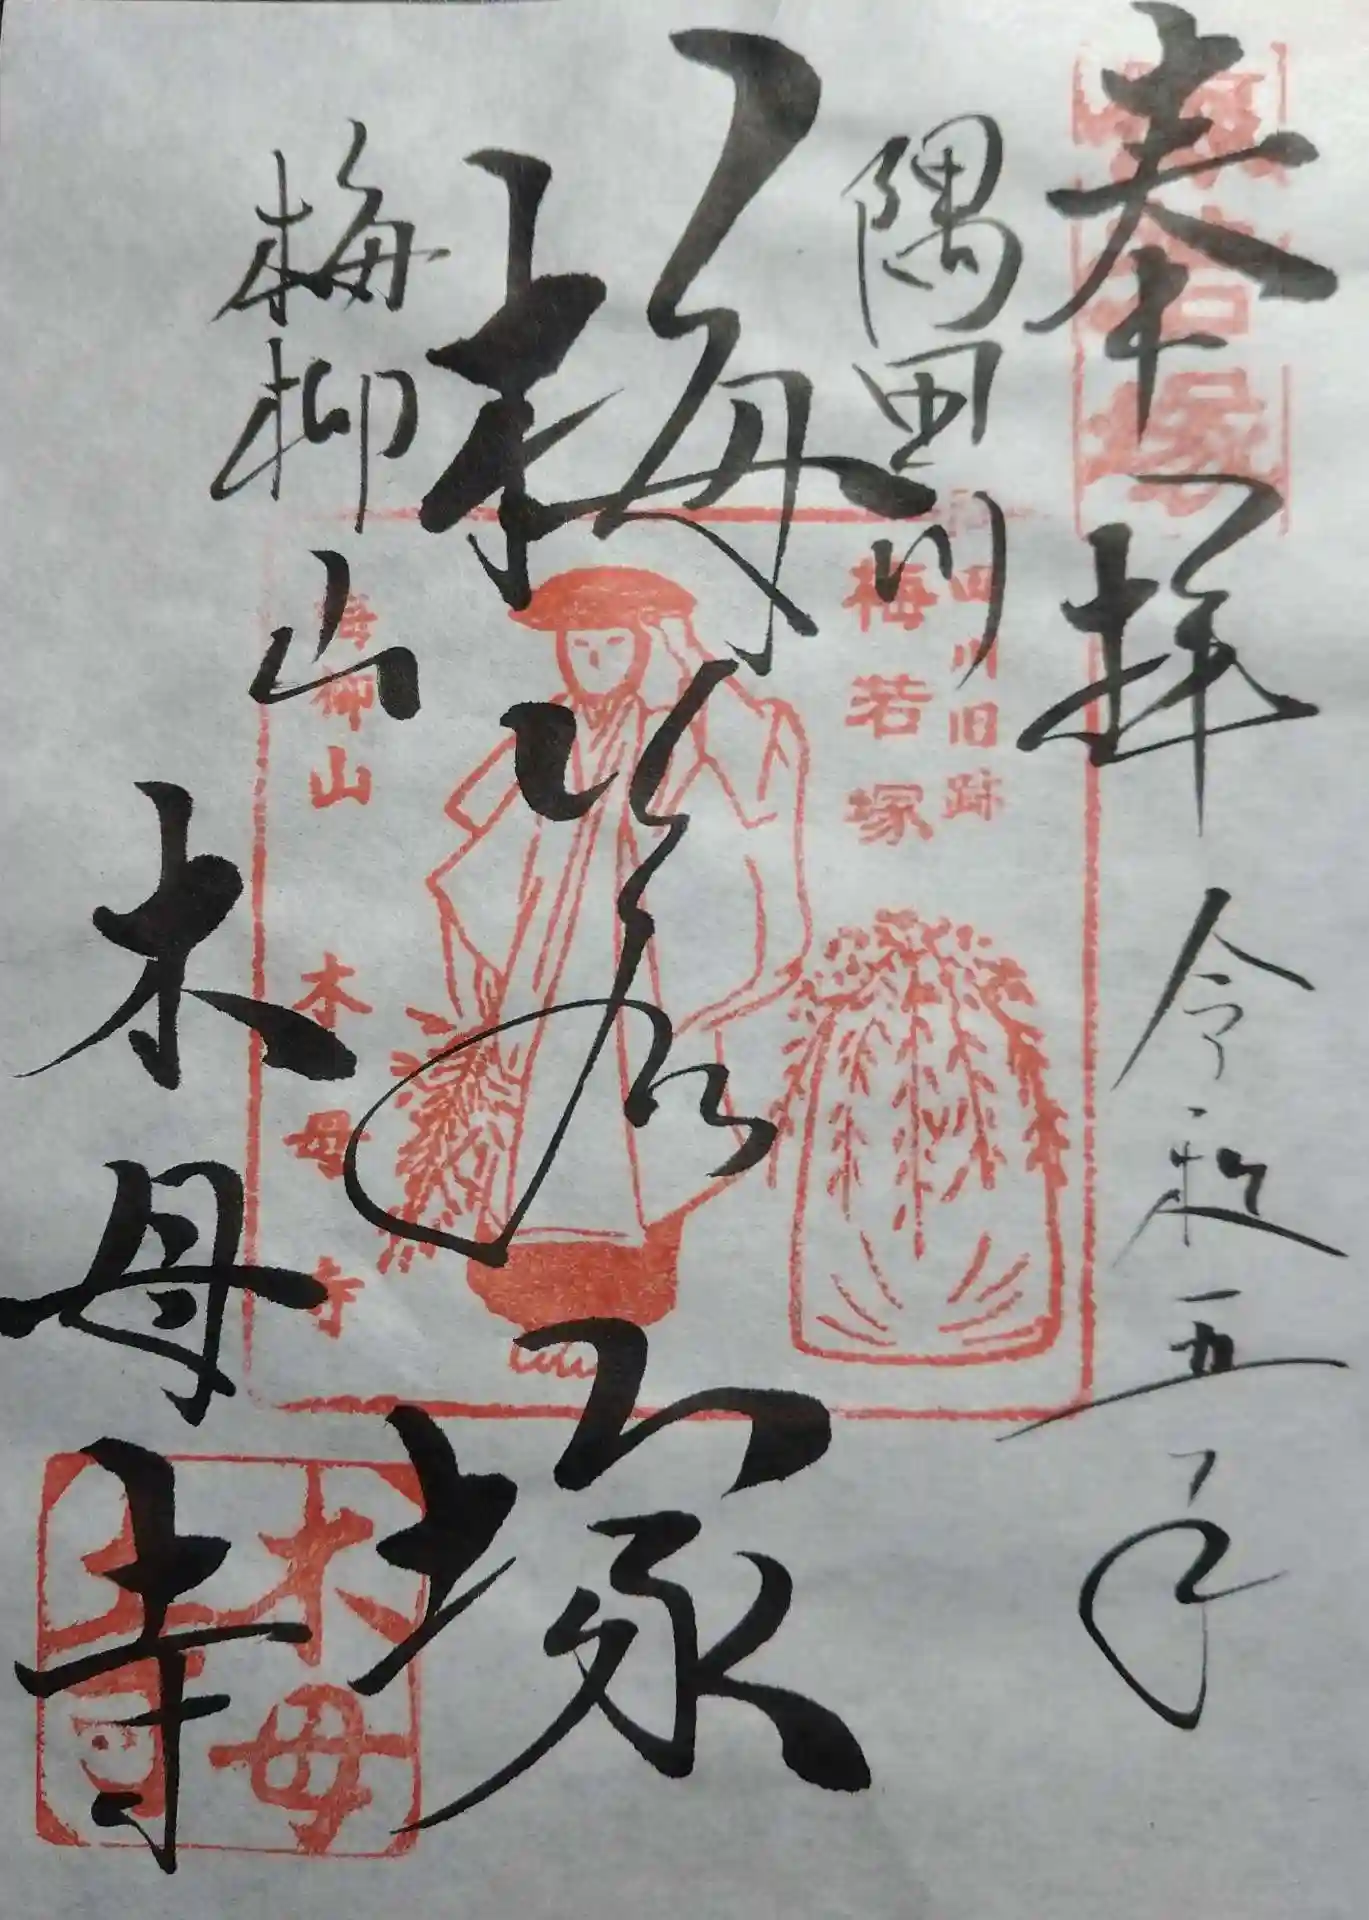 奉拝
令和五年
隅田川
梅若塚
梅柳山
木母寺
梅若塚
隅田川旧跡
梅若塚
梅柳山
木母寺
木母寺